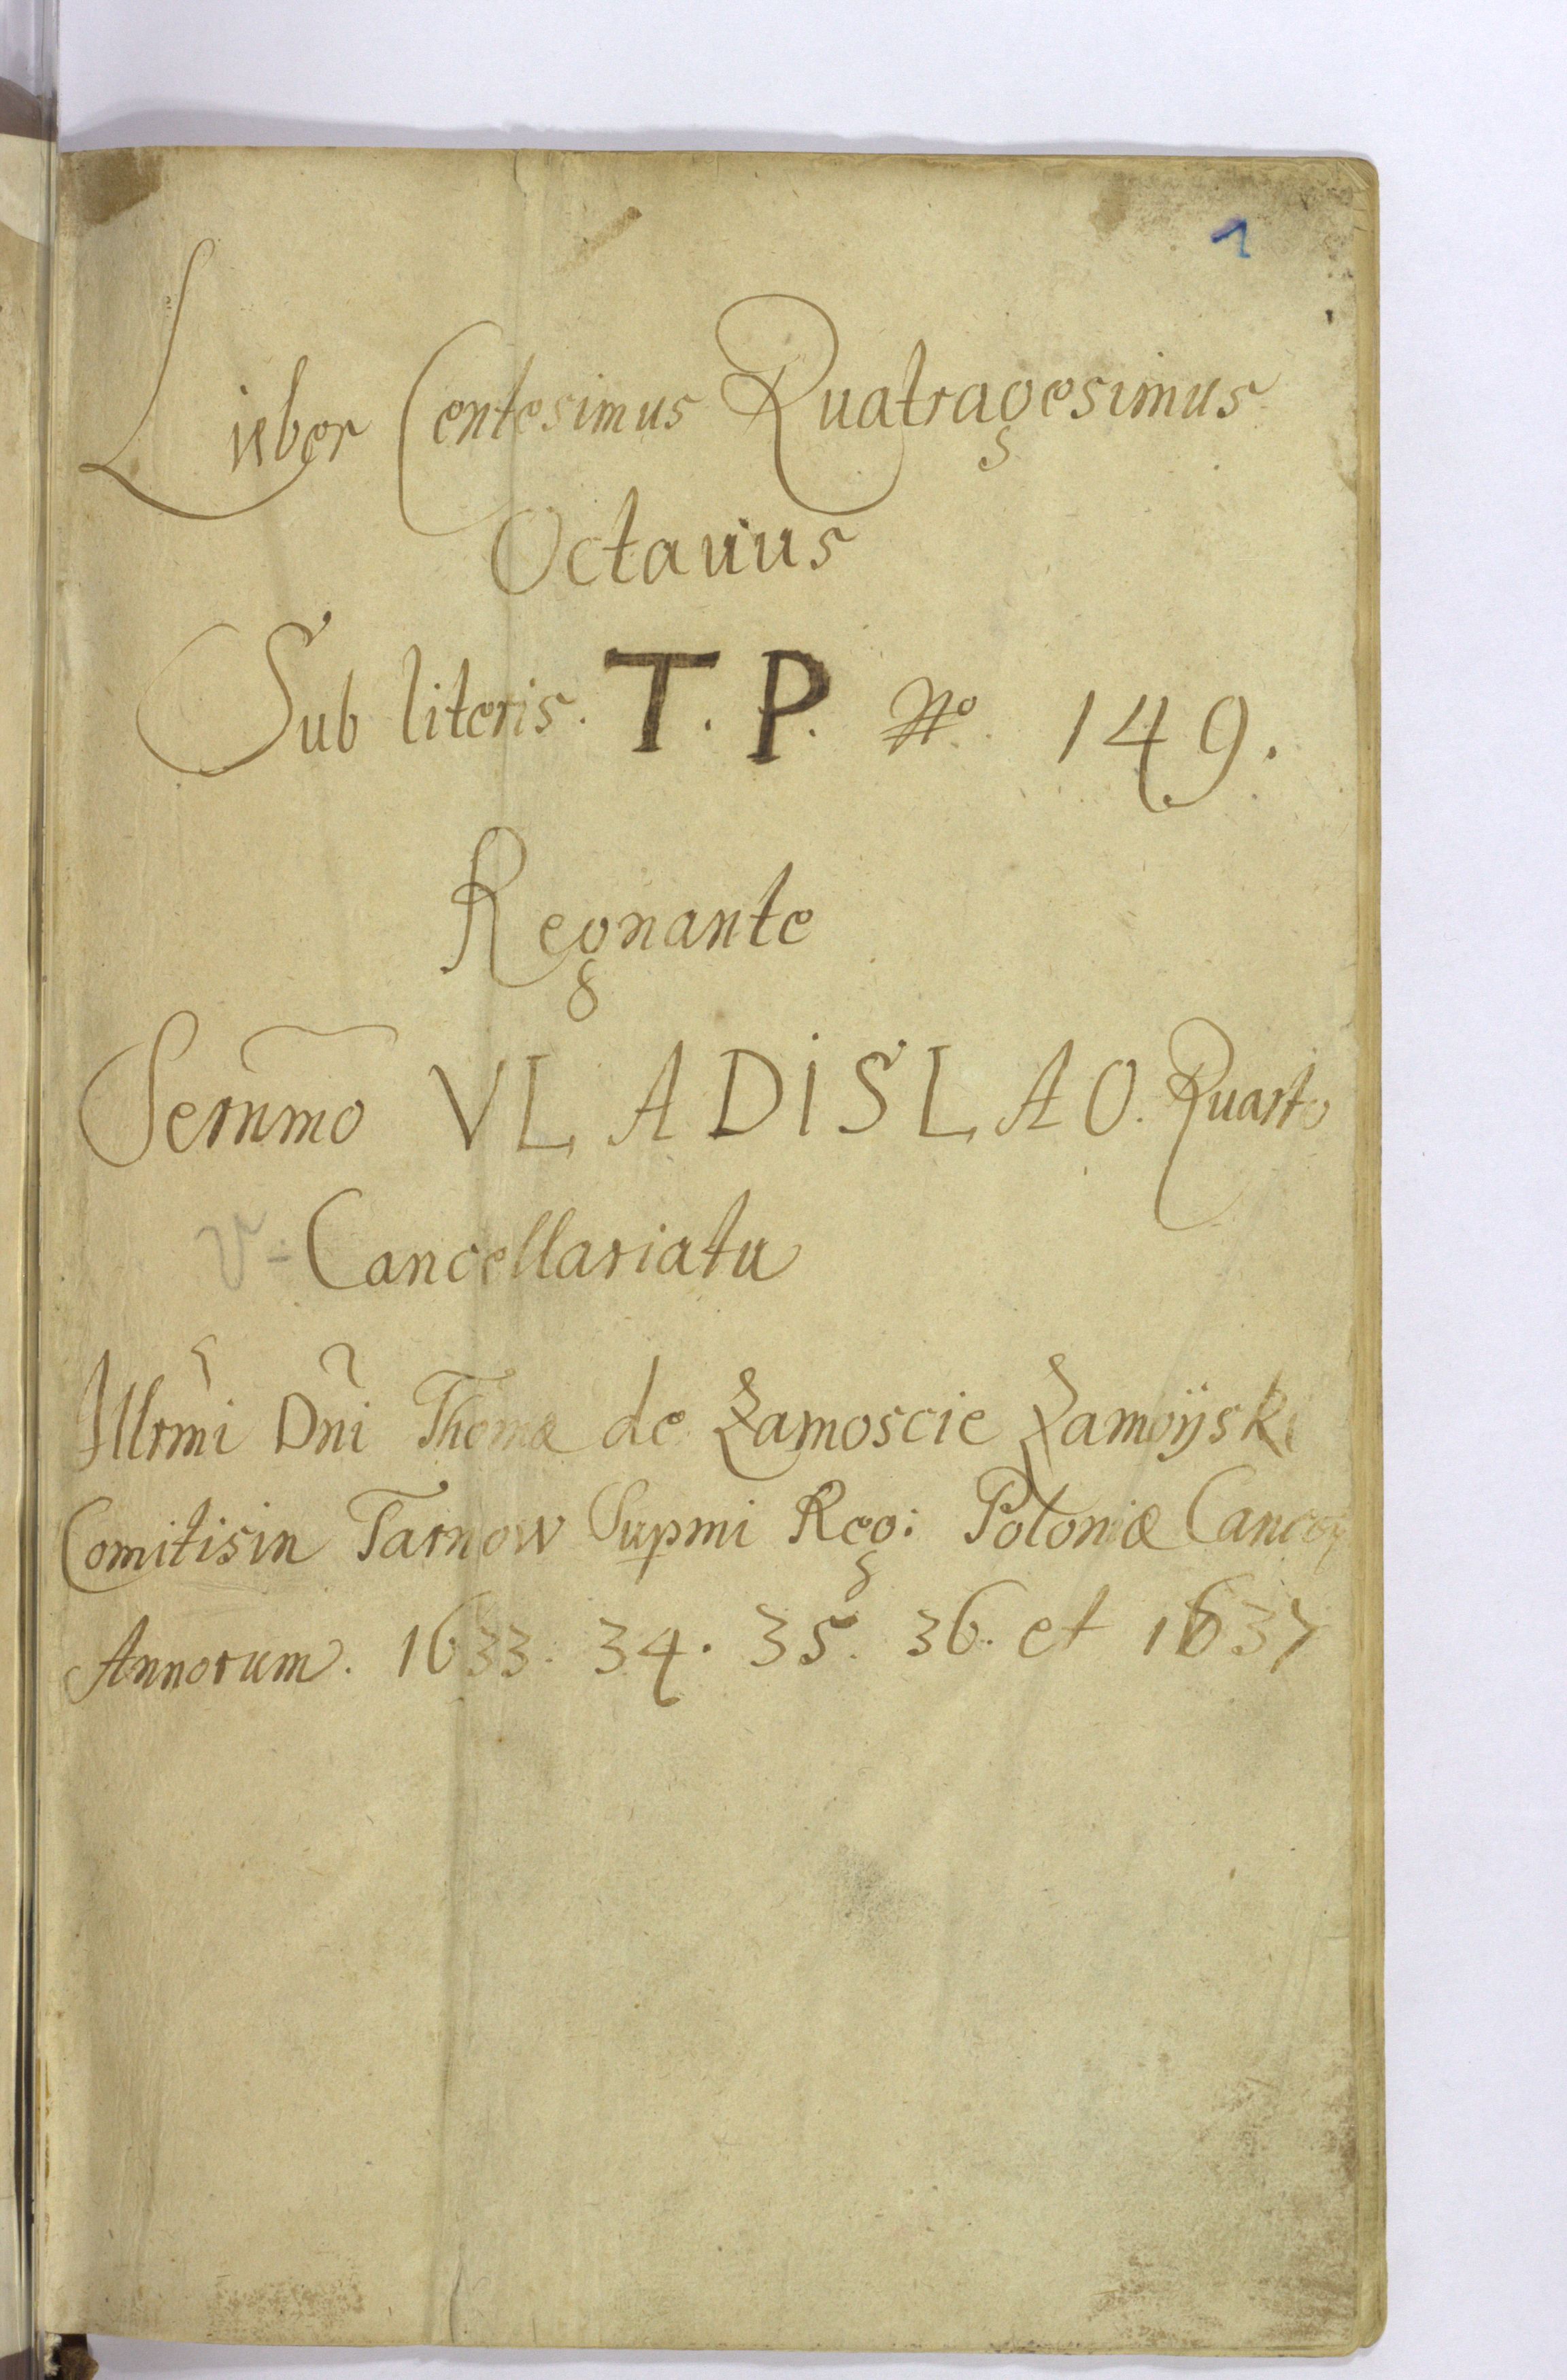 1
Lieber Centesimus Quatragesimus
Octauus
Sub literis. T. P. No 149.
Regnante
Sernmo VLADISLAO. Quarto
V - Cancellariatu
Illrmi Dni Thomæ de Zamoscie Zamoijski
Comitis in Tarnow Supmi Reg: Poloniæ Cance
Annorum. 1633. 34. 35. 36. et 1637